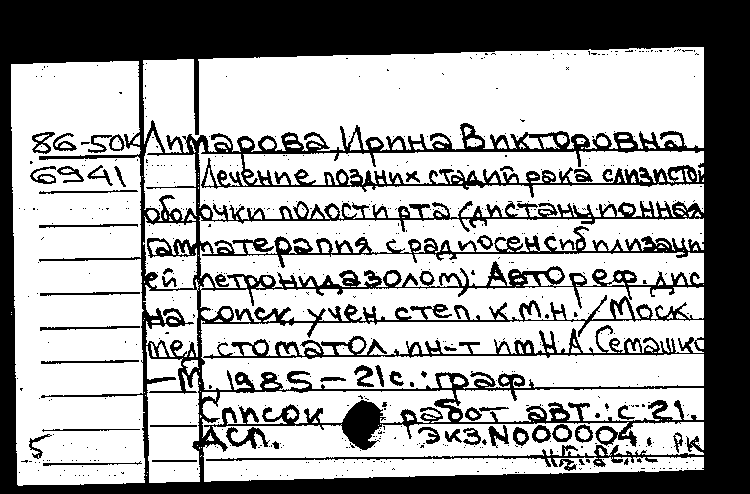 86-50К Лимарова, Ирина Викторовна.
6941 Лечение поздних стадий рака слизистой
оболочки полости рта (дистанционная
гамматерапия с радиосенсибилизаци-
ей метронидазолом): Автореф. дис
на соиск. учен. степ. к.м.н. / Моск.
мед. стоматол. ин-т им. Н.А. Семашко
— М. 1985. — 21 с. : граф.
Список работ авт.: с 21.
5 ДСП. Экз. N000004. РК